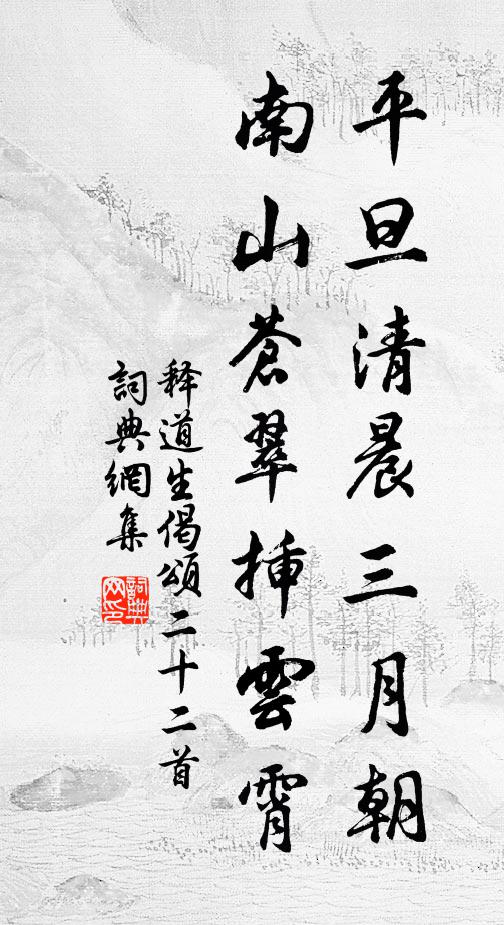 平旦清晨三月朝
南山蒼翠挿雲霄
释道生偈頌二十二首
詞典網集
詞典网印